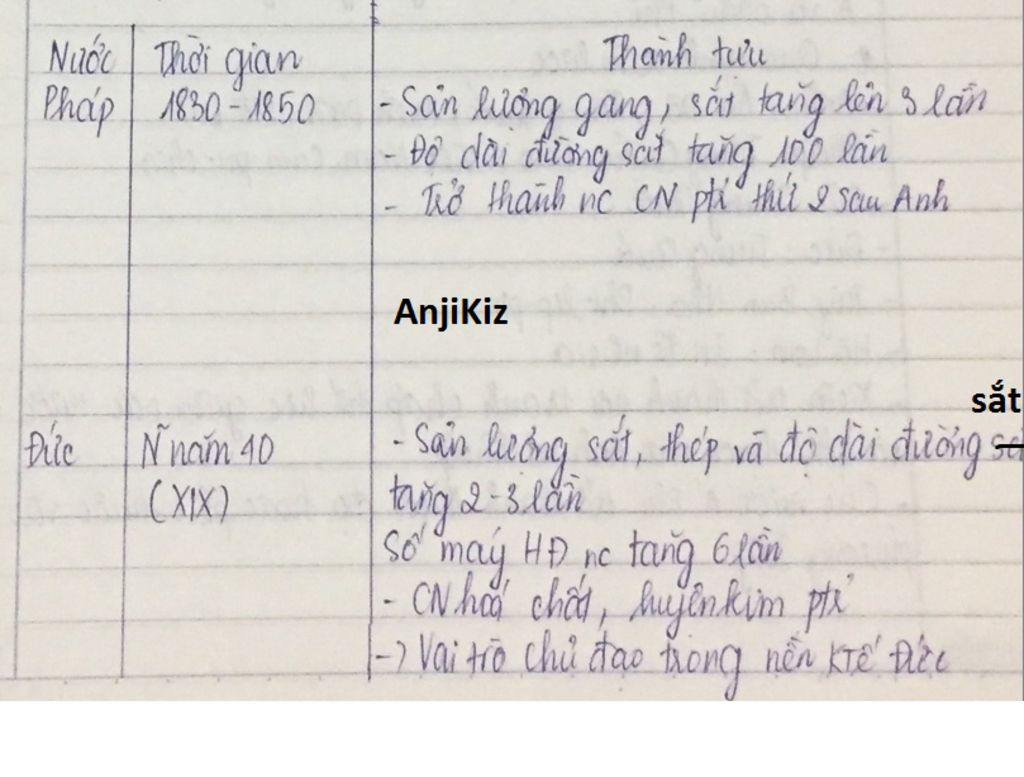 Nước Thời gian Thành tựu
Pháp 1830-1850 - Sản lượng gang, sắt tăng lên 3 lần
- Độ dài đường sắt tăng 100 lần
- Trở thành nc CN ptr thứ 2 sau Anh
AnjiKiz
sắt
Đức Ñ năm 40 - Sản lượng sắt, thép và độ dài đường
(XIX) tăng 2-3 lần
Số máy HĐ nc tăng 6 lần
- CN hoá chất, luyện kim ptr
-> Vai trò chủ đạo trong nền KTế Đức